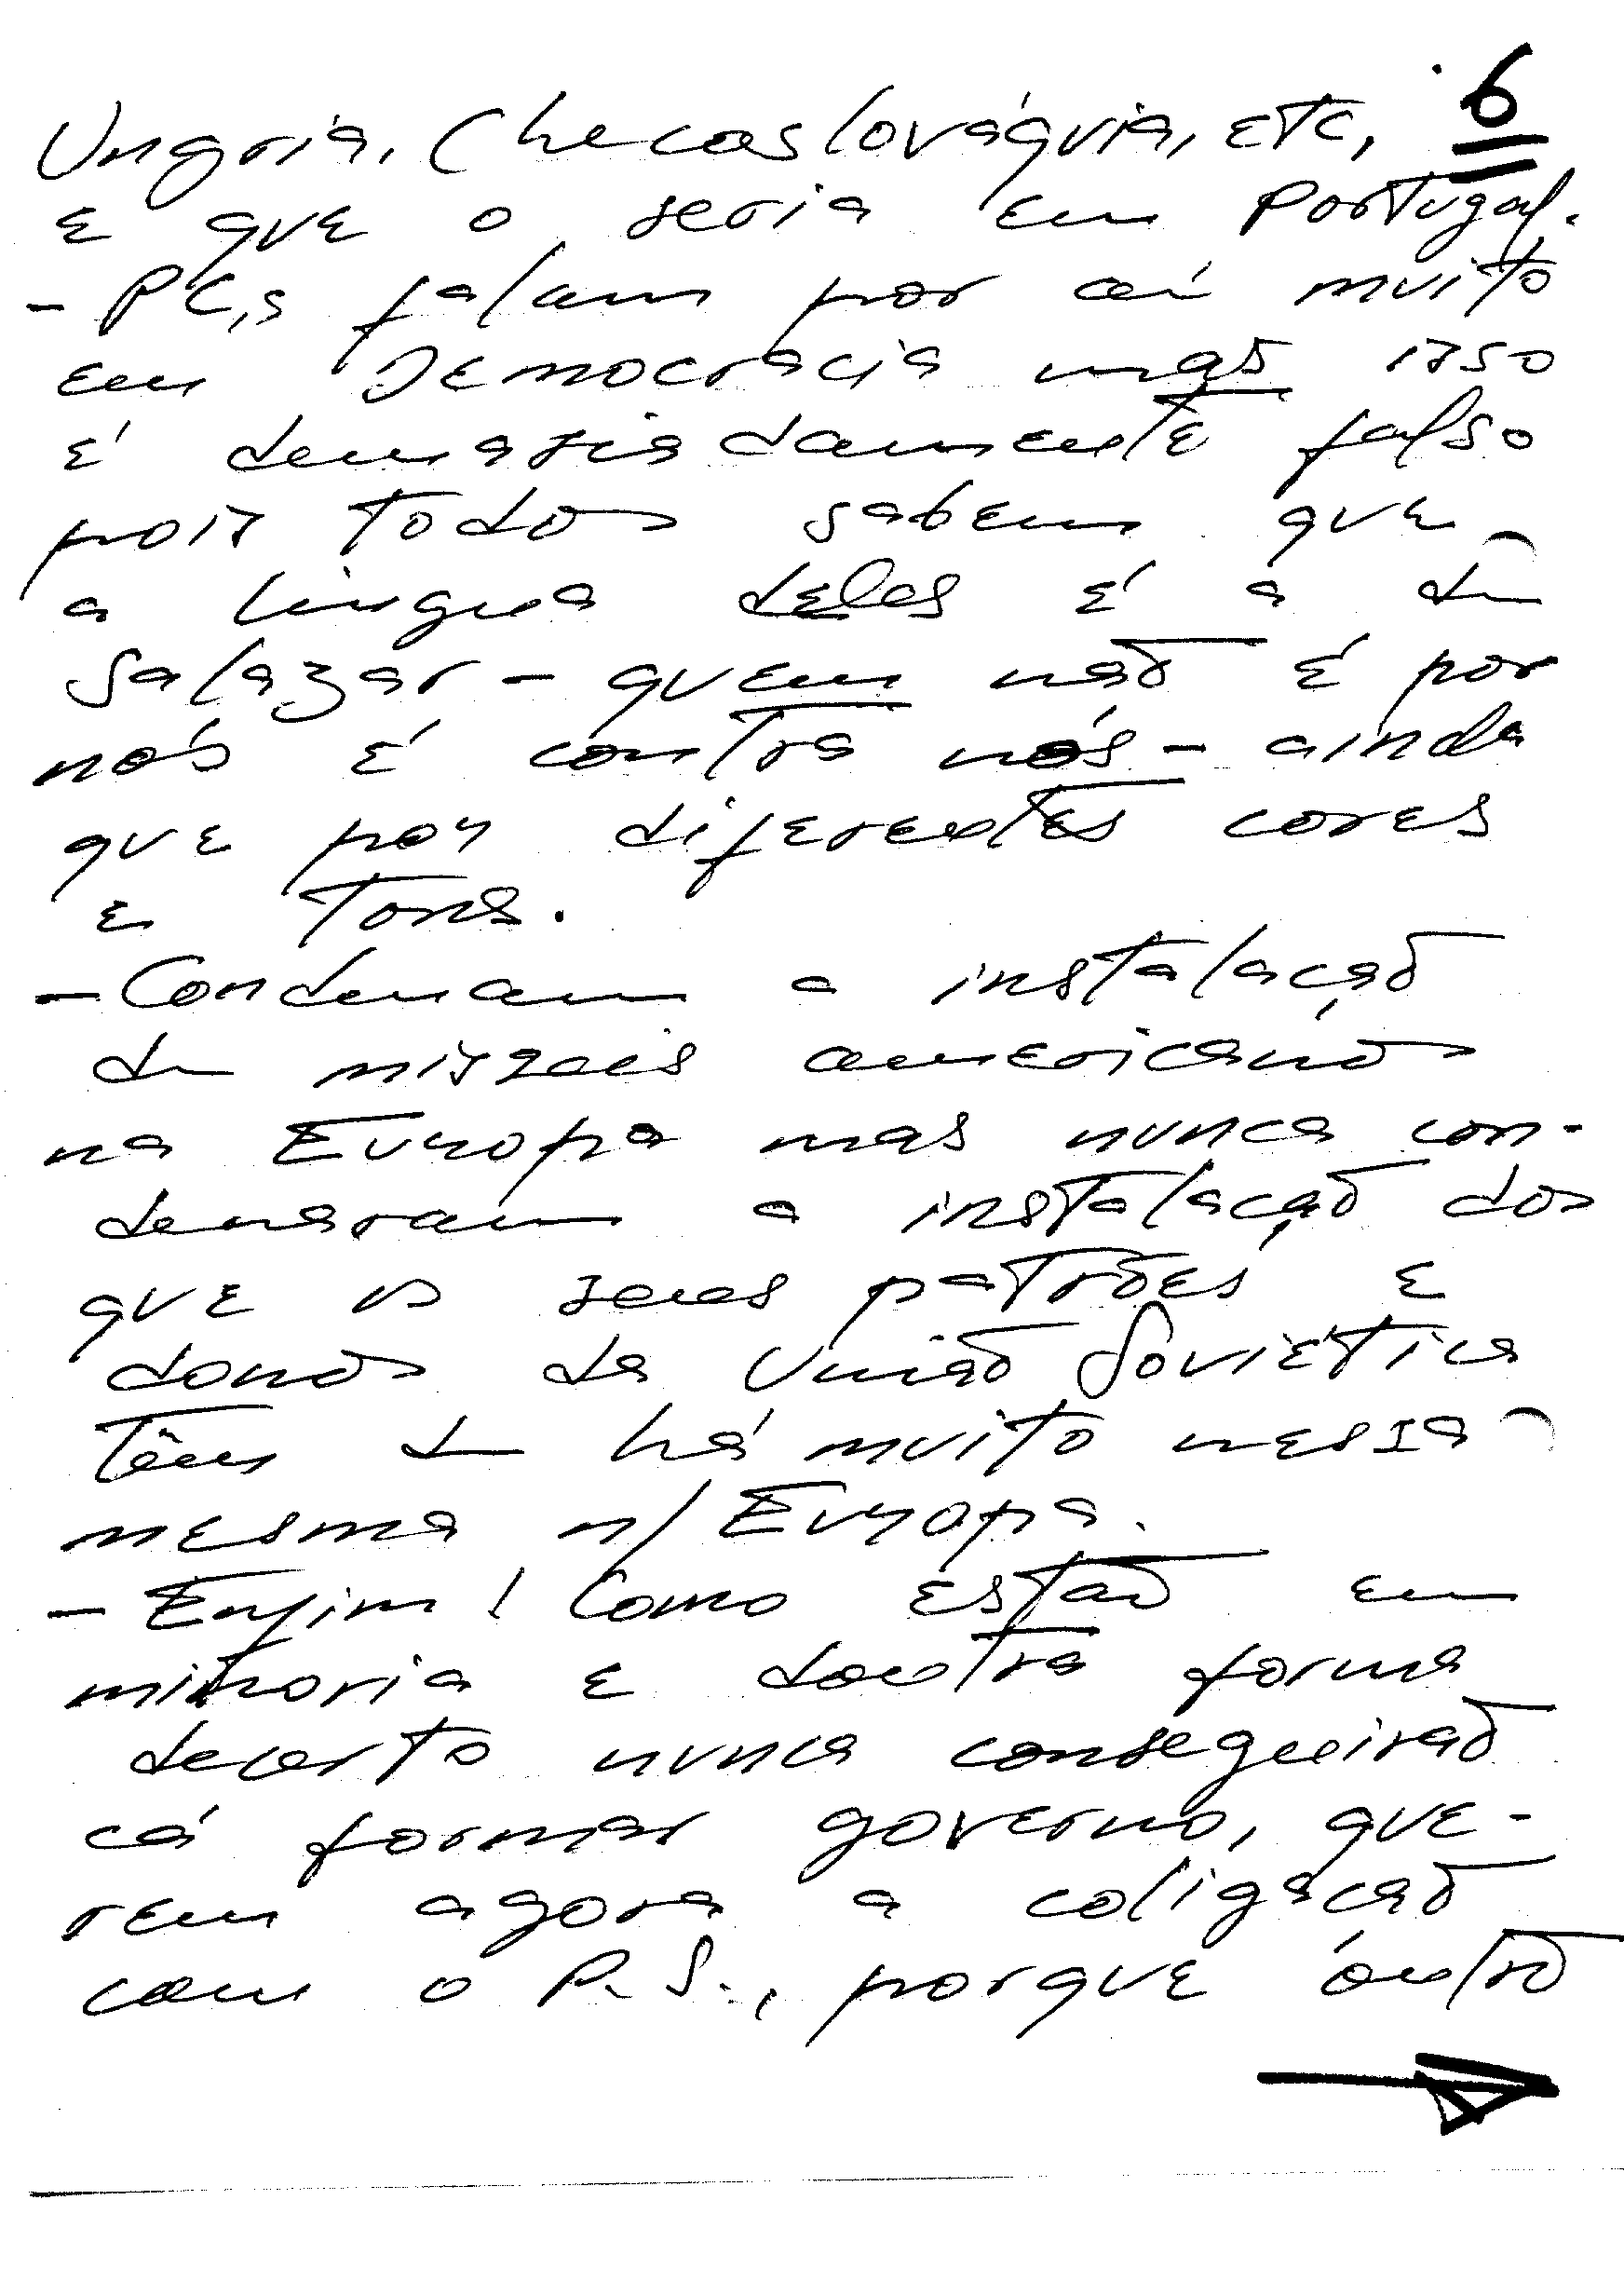 6
Ungria, Checoslováquia, etc,
e que o seria em Portugal.
- PC,s falam por aí muito
em Democracia mas isso
é demasiadamente falso
pois todos sabem que
a lingua deles é a de
Salazar - quem não é por
nós é contra nós - ainda
que por diferentes cores
e tons.
- Condenam a instalação
de misseis americanos
na Europa mas nunca con-
denaram a instalação dos
que os seus patrões e
donos da União Soviética
têm de há muito nessa
mesma n/ Europa.
- Enfim! Como estão em
minoria e doutra forma
decerto nunca conseguirão
cá formar governo, que-
rem agora a coligação
com o P.S., porque óutro